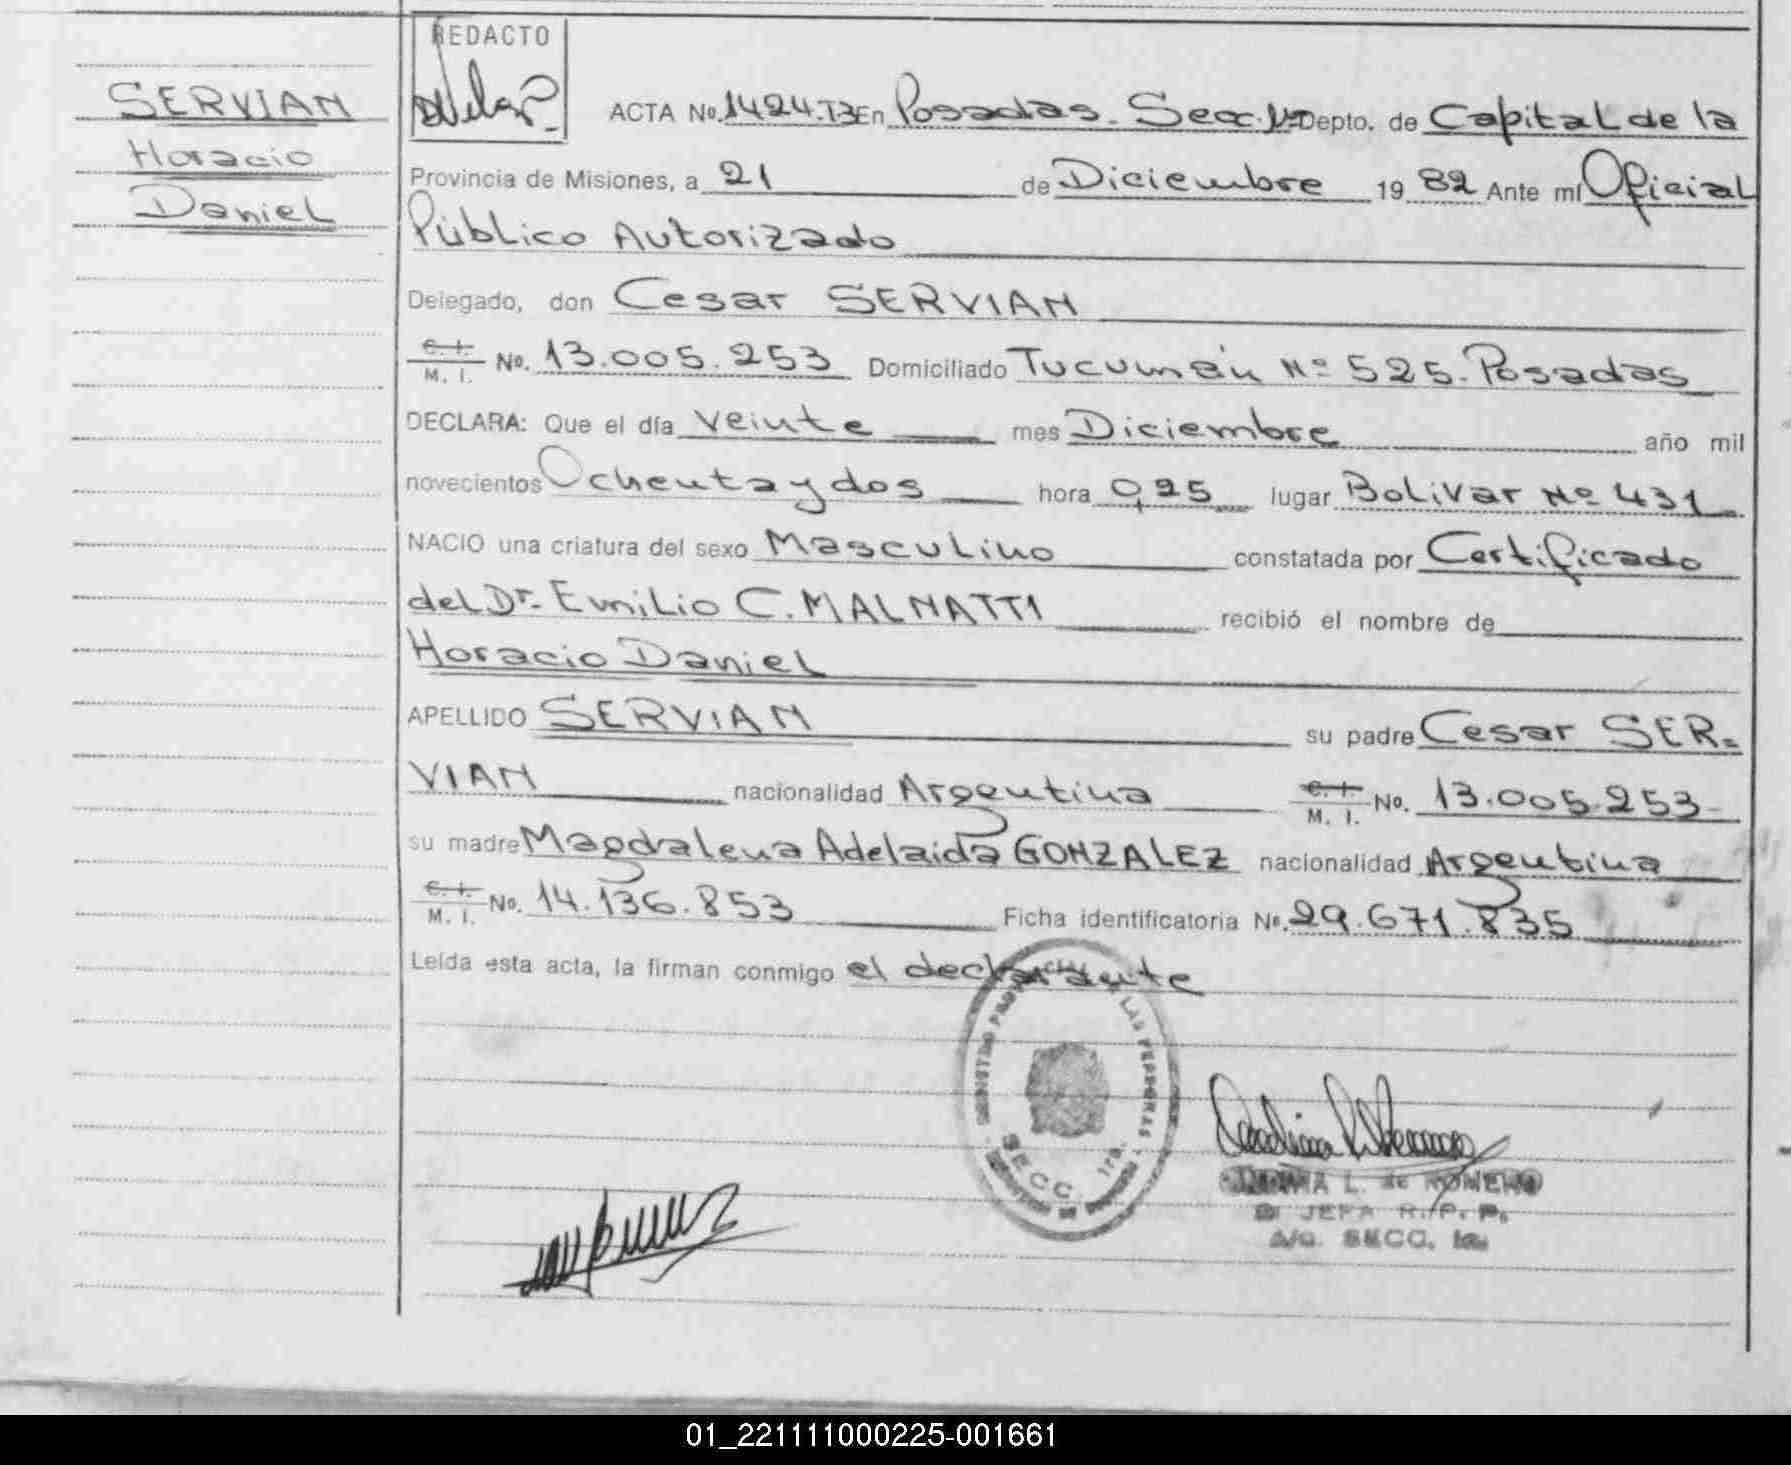 SERVIAN
Horacio
Daniel
REDACTO
ACTA No. 1424.T3 En Posadas. Secc. 1ª Depto. de Capital de la
Provincia de Misiones, a 21 de Diciembre 19 82 Ante mí Oficial
Público Autorizado
Delegado, don Cesar SERVIAN
C. I.
M. I. No. 13.005.253 Domiciliado Tucumán Nº 525. Posadas
DECLARA: Que el día veinte mes Diciembre año mil
novecientos Ochenta y dos hora 0,25 lugar Bolivar Nº 431
NACIO una criatura del sexo Masculino constatada por Certificado
del Dr. Emilio C. MALNATTI recibió el nombre de
Horacio Daniel
APELLIDO SERVIAN su padre Cesar SER=
VIAN nacionalidad Argentina C. I.
M. I. No. 13.005.253
su madre Magdalena Adelaida GONZALEZ nacionalidad Argentina
C. I.
M. I. No. 14.136.853 Ficha identificatoria No. 29.671.835
Leída esta acta, la firman conmigo el declarante
LAS PERSONAS
SECC. 1ra.
L. de
JEFA R. P. P.
A/C. SECC. 1a.
01_221111000225-001661